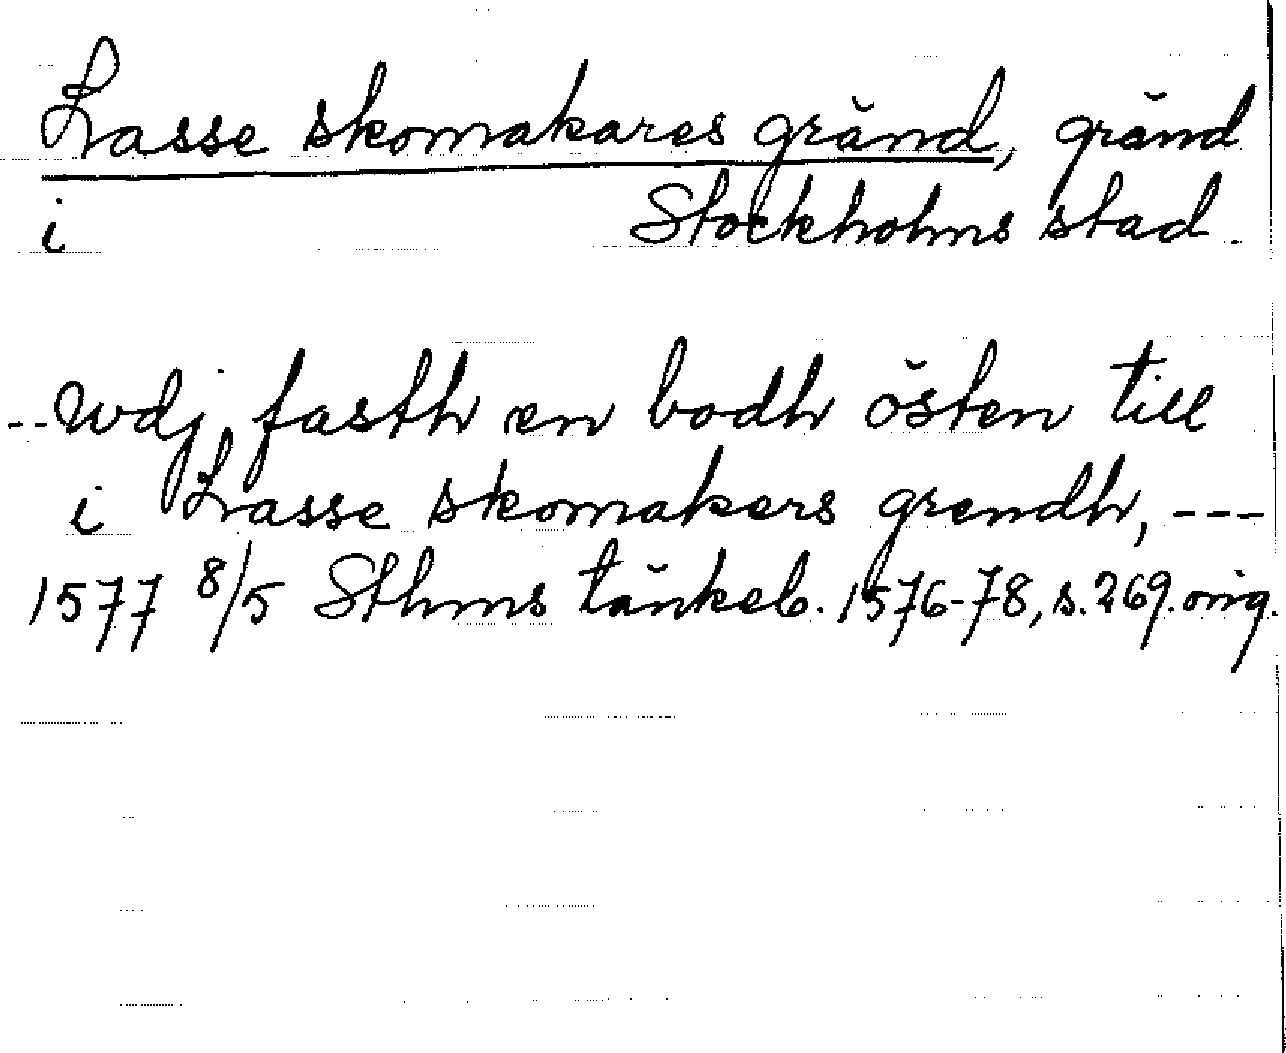 Lasse skomakares gränd, gränd
i Stockholms stad.
--wdj fasth en bodh östen till
i Lasse skomakers grendh, ---
1577 8/5 Sthms tänkeb. 1576-78, s. 269. orig.